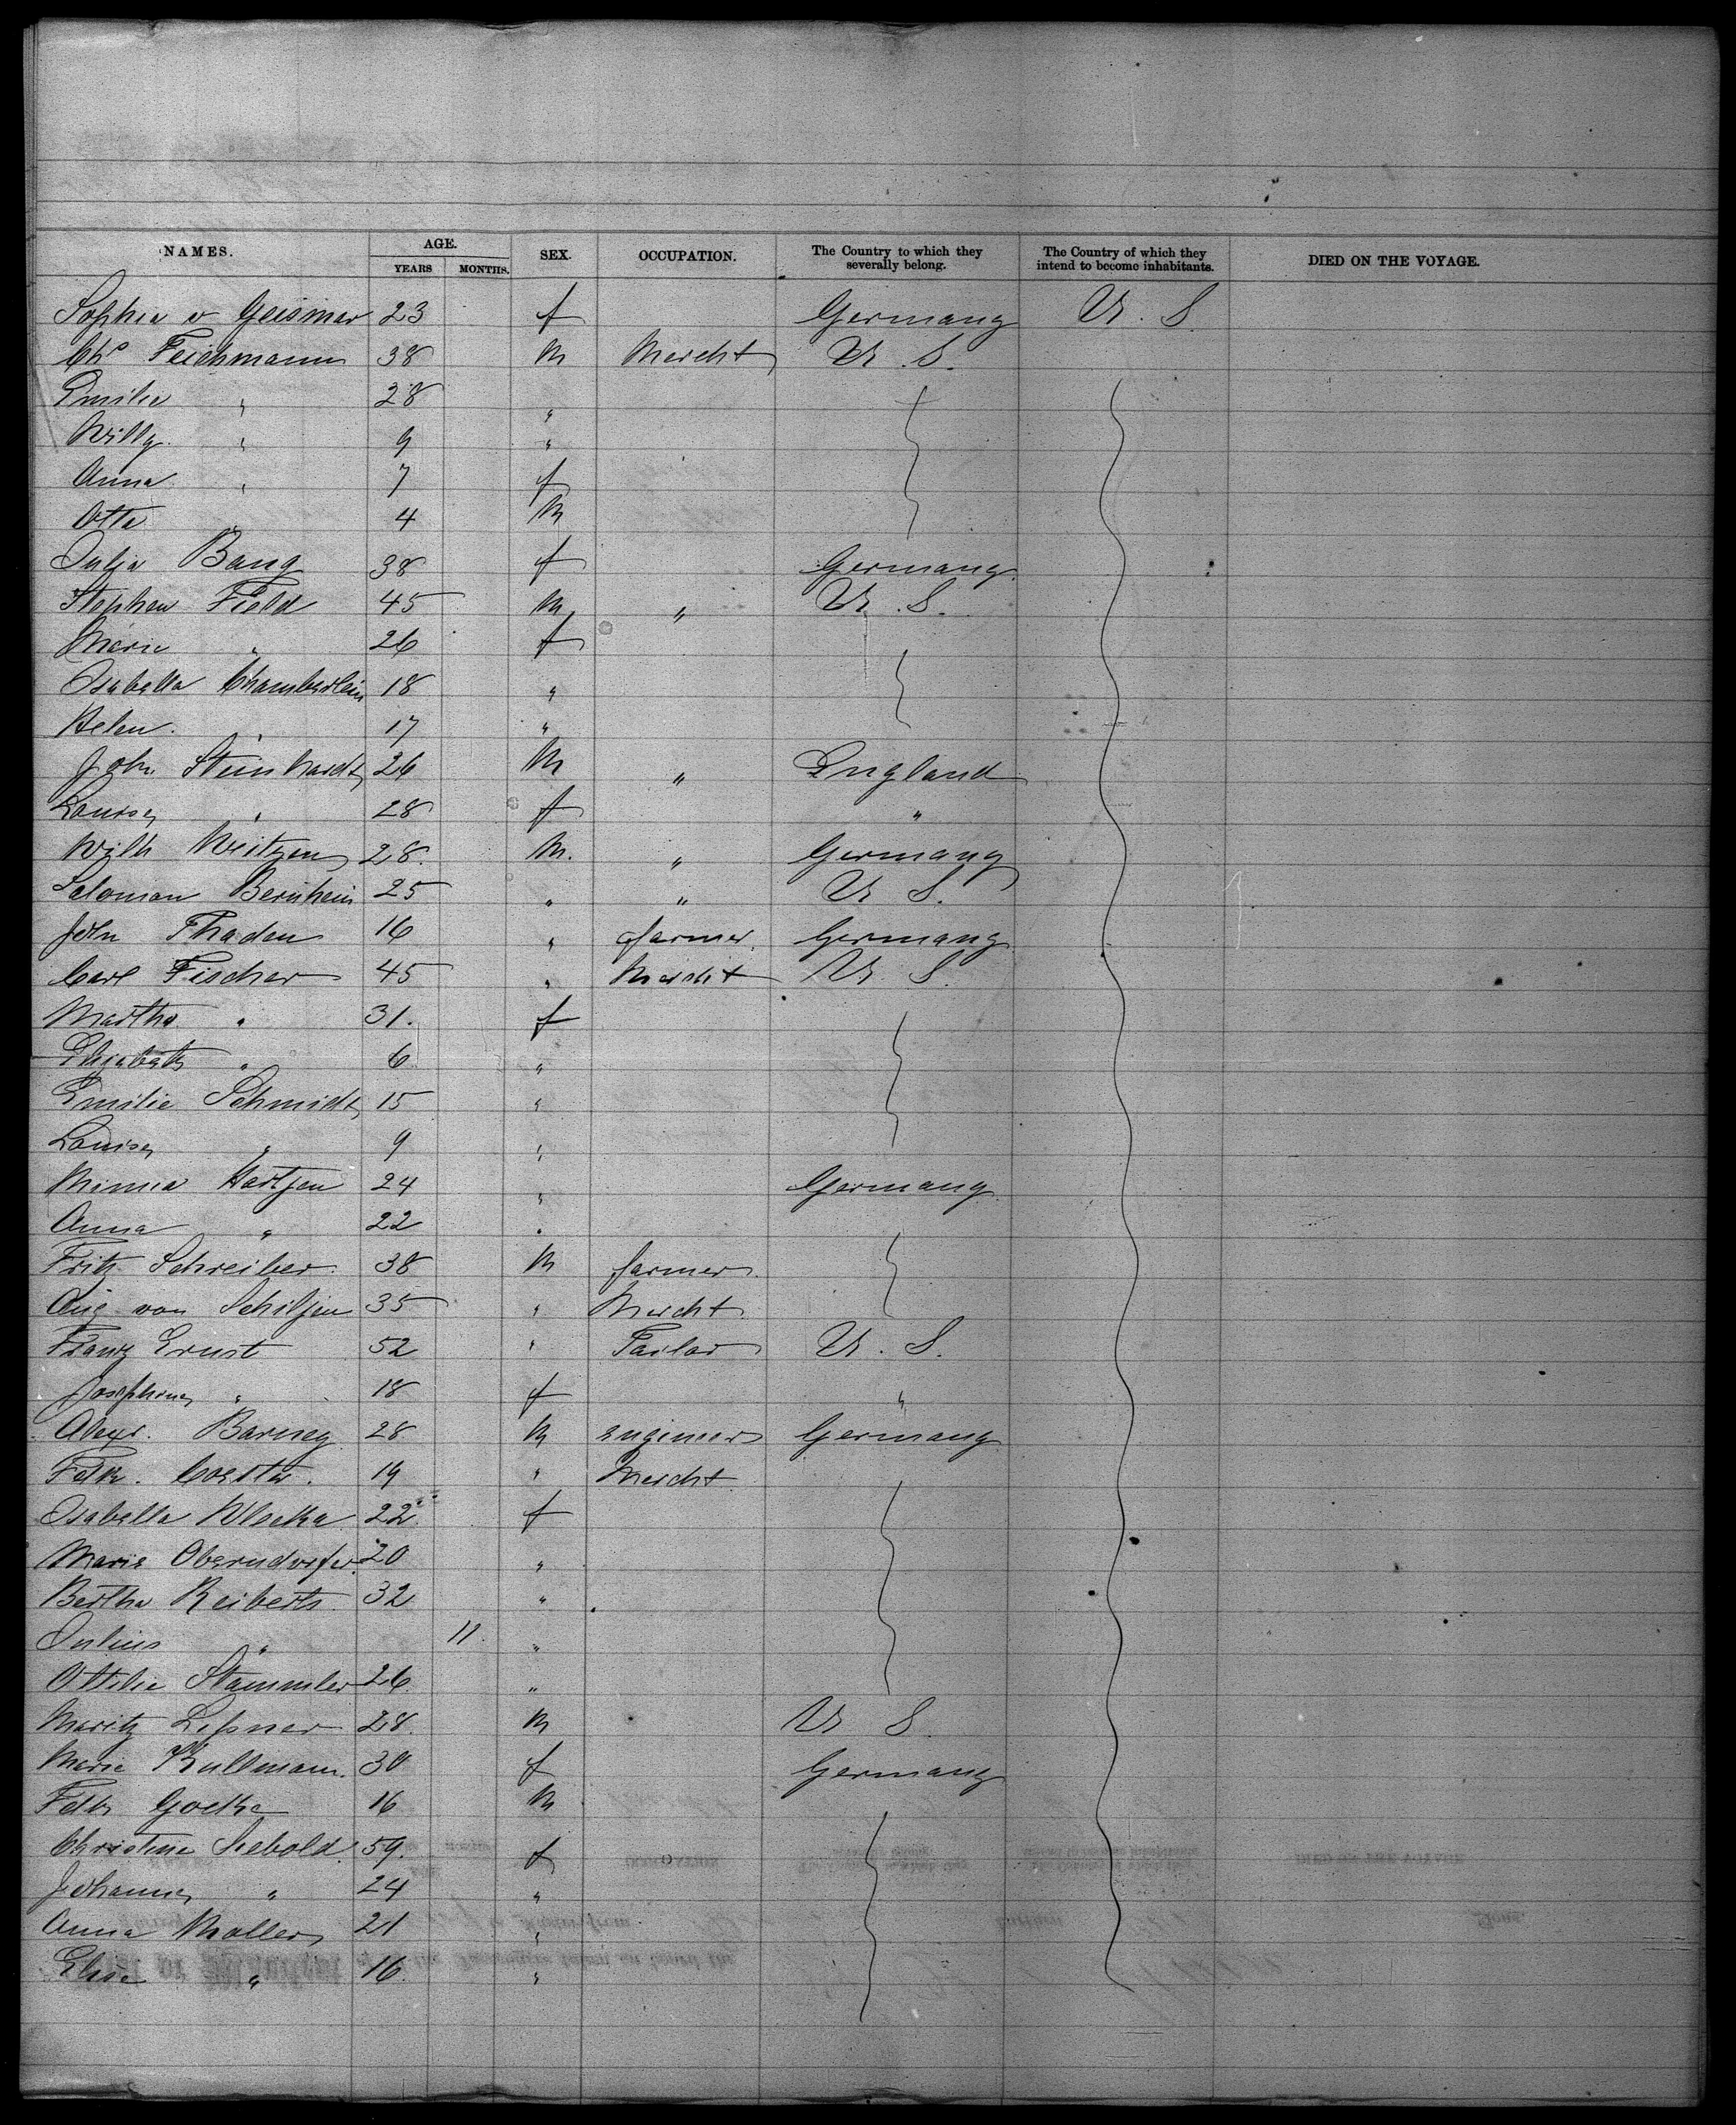 NAMES. AGE. YEARS MONTHS. SEX. OCCUPATION. The Country to which they severally belong. The Country of which they intend to become inhabitants. DIED ON THE VOYAGE.
Sophie v Geismar 23 f Germany U. S.
Chs Teichmann 38 m Mercht U. S.
Emilie " 28 "
Willy " 9 "
Anna " 7 f
Otto " 4 m
Julia Bang 38 f Germany
Stephen Field 45 m " U. S.
Marie " 26 f
Isabella Chamberlain 18 "
Helen " 17 "
John Steinhardt 26 m " England
Louise " 28 f "
Wilh Weitzen 28 m. " Germany
Saloman Bernheim 25 " " U S.
John Thaden 16 " farmer Germany
Carl Fischer 45 " Mercht U S.
Martha " 31. f
Elisabeth " 6 "
Emilie Schmidt 15 "
Louise " 9 "
Minna Hartjen 24 " Germany
Anna " 22 "
Fritz Schreiber 38 m farmer
Aug. von Schiljen 35 " Mercht
Franz Ernst 52 " Tailor U. S.
Josephine " 18 f "
Alexr. Barney 28 m engineer Germany
Fdk. 19 " Mercht
Isabella 22 f
Marie Oberndorfer 20 "
Bertha Reiberts 32 "
Julius " 11. "
Ottilie Stammler 26 "
Moritz Leßner 28. m U S.
Marie Kullmann. 30 f Germany
Fdk Goethe 16 m
Christine Seebold 59. f
Johanne " 24 "
Anna Moller 21 "
Elise " 16. "